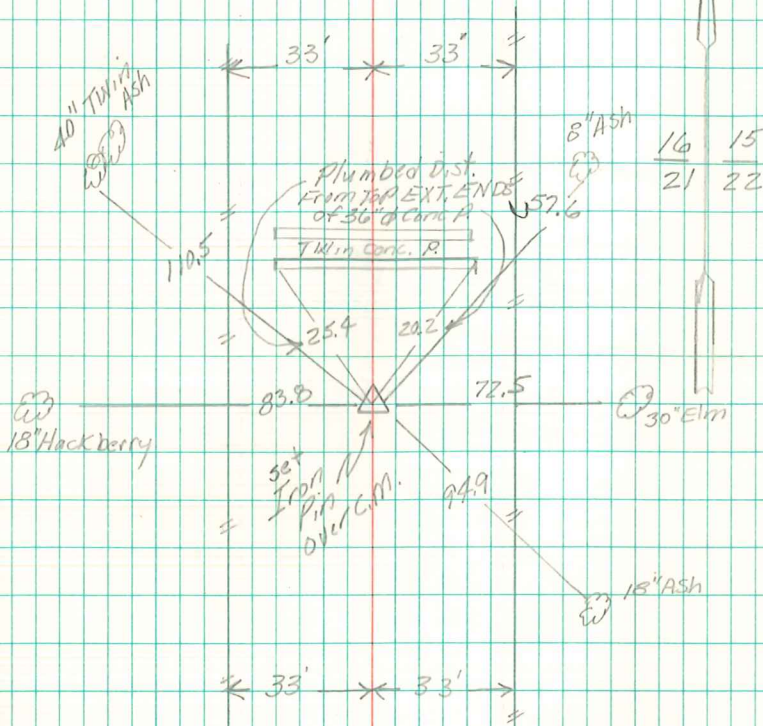 33'
33'
40" Twin
Ash
8" Ash
16
15
21
22
Plumbed Dist.
From Top EXT. ENDS
of 36"ø Conc P.
57.6
Twin Conc. P.
110.5
25.4
20.2
83.8
72.5
18" Hackberry
30" Elm
Set
Iron
Pin
over C.M.
94.9
18" Ash
33'
33'